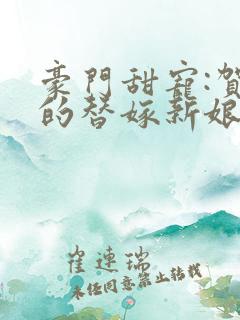 豪門甜寵:賀
的替嫁新娘
崔連瑞
未经同意禁止转载